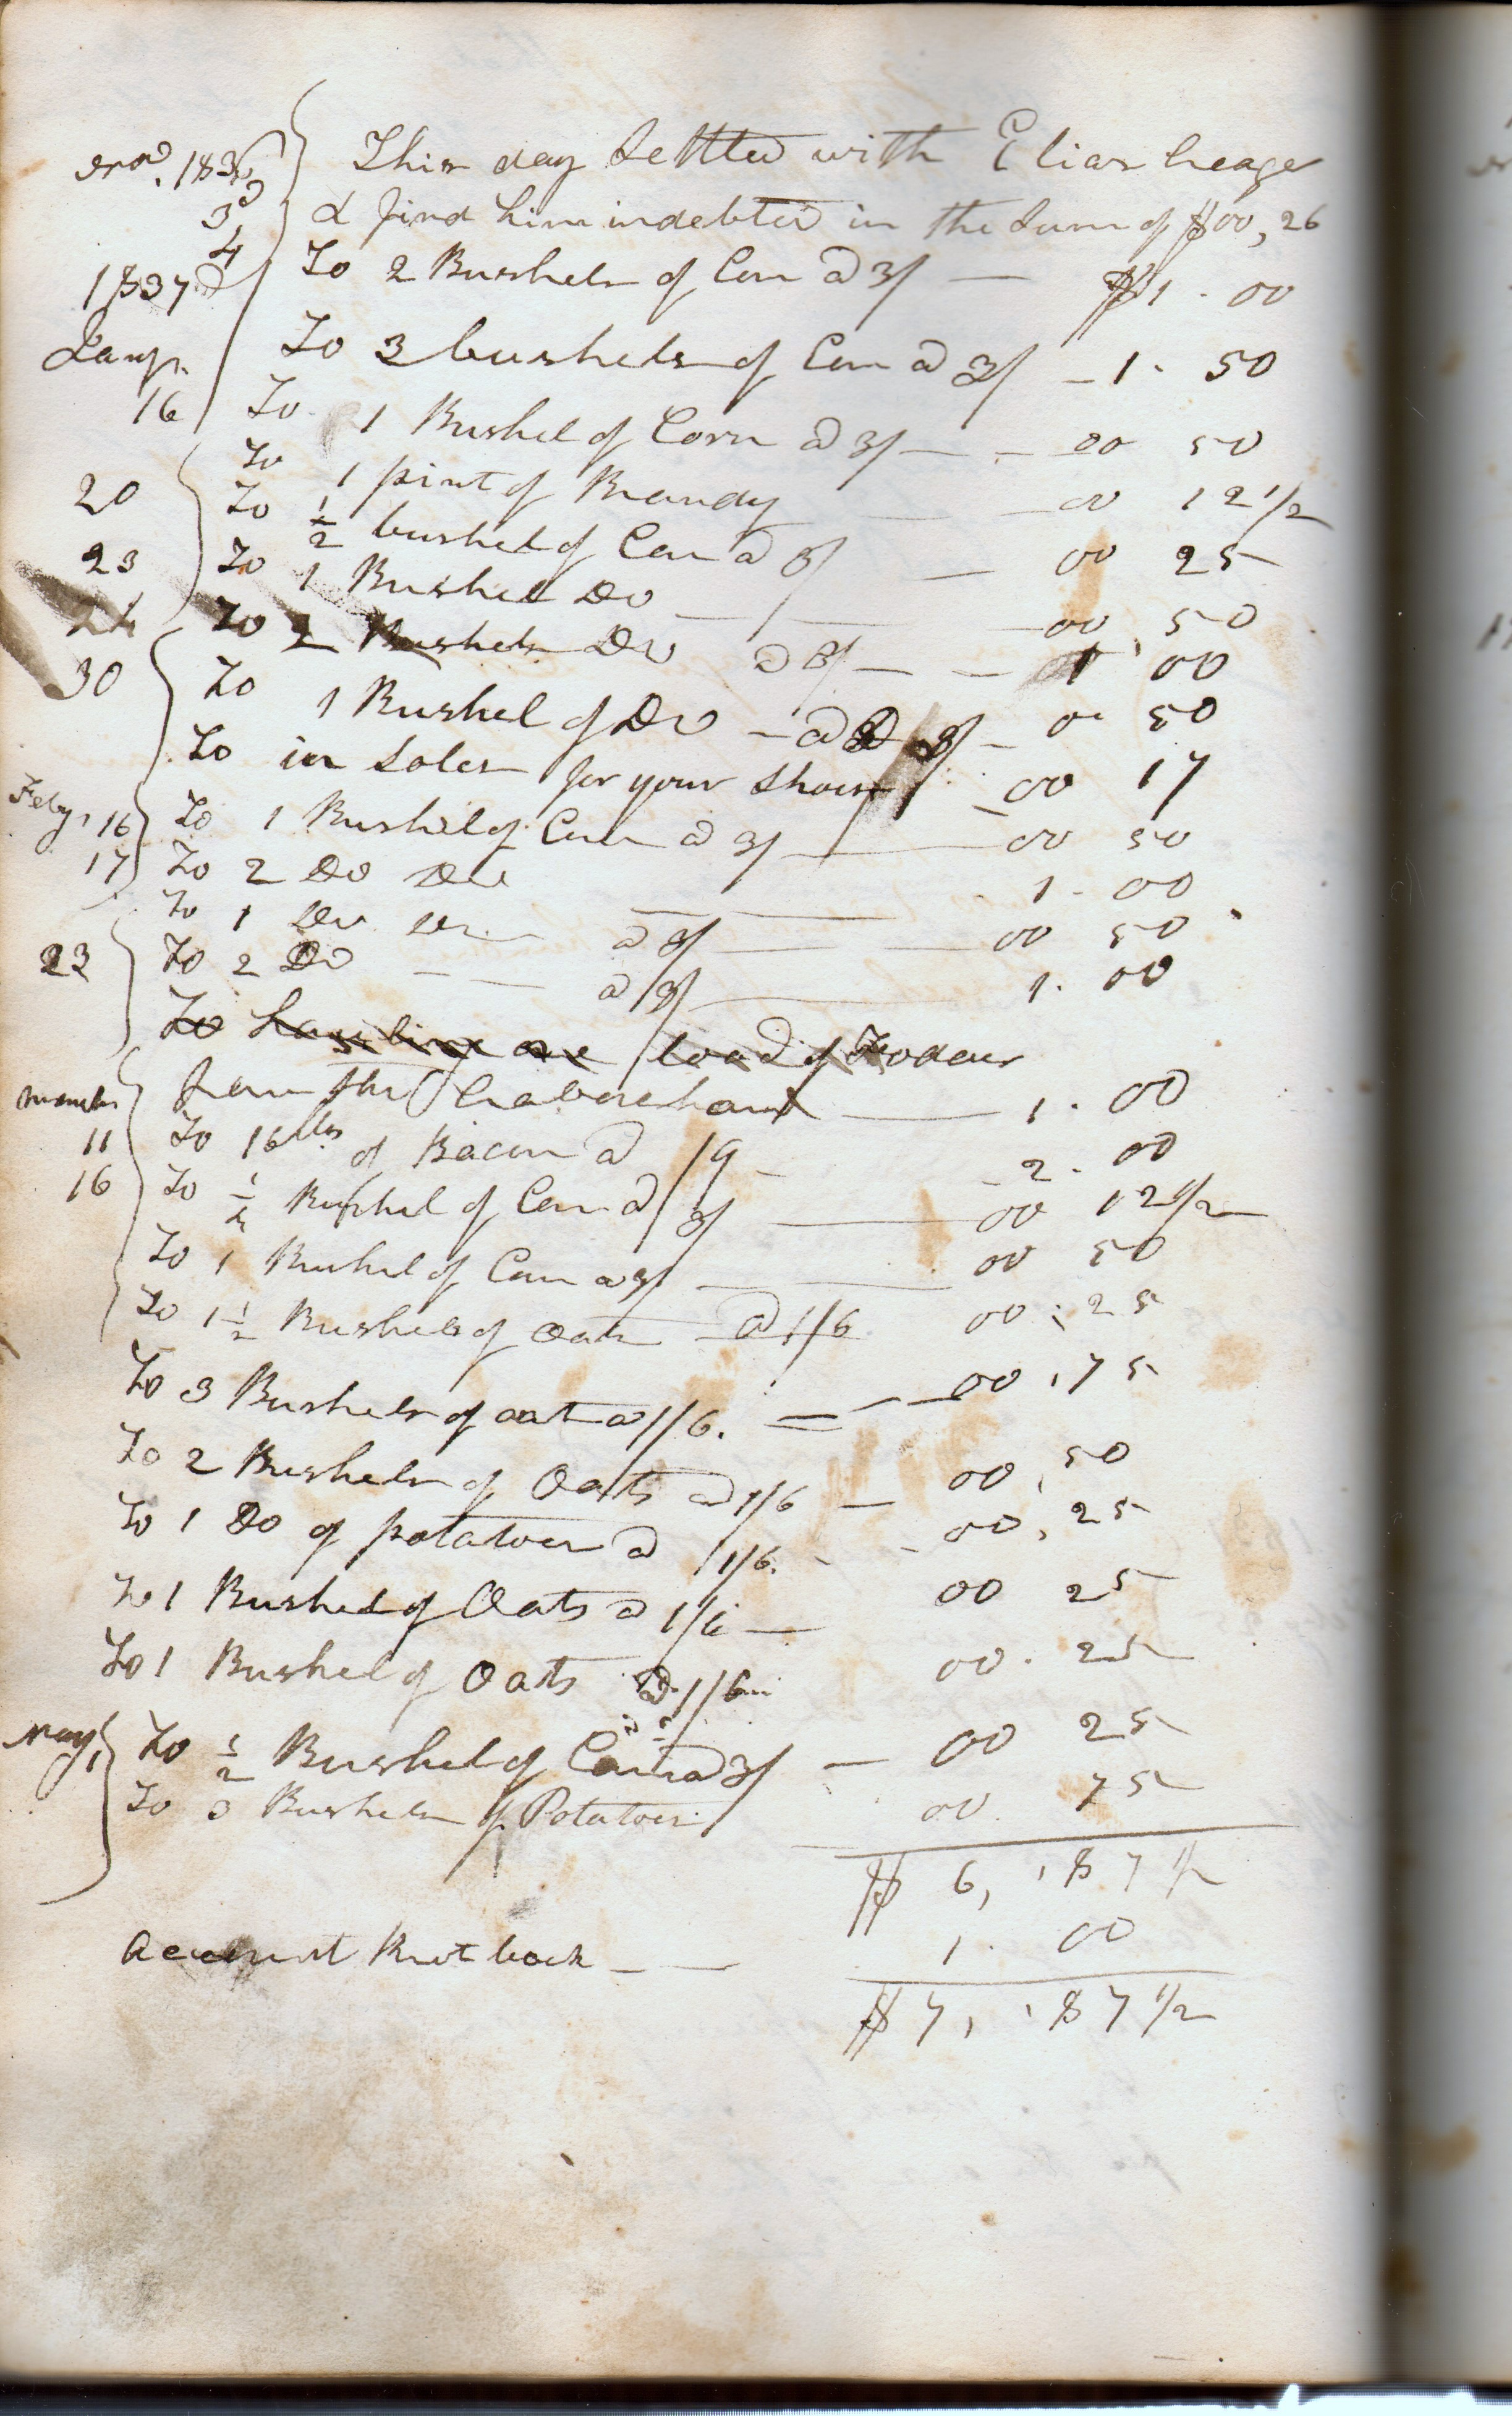 Novr. 1836 This day Settled with Elias heage
3d & find him indebted in the Sum of $00,26
4 To 2 Bushels of Corn @ 3/ — $1 . 00
1837
Jany. To 3 bushels of Corn @ 3/ — 1 . 50
16 To 1 Bushel of Corn @ 3/ — 00 50
To 1 pint of Brandy 00 12 1/2
20 To 1/2 bushel of Corn @ 3/ — 00 25
23 To 1 Bushel Do — 00 50
24 To 2 Bushels Do @ 3/ — 1 00
30 To 1 Bushel of Do — @ 3/ — 0 50
To in Soles for your Shoes 00 17
Feby. 16 To 1 Bushel of Corn @ 3/ — 00 50
17 To 2 Do Do 1 . 00
To 1 Do @ 3/ — 00 50
23 To 2 Do — @ 3/ — 1 . 00
To hauling one load of Fodder
from the — 1 . 00
March
11 To 16 lbs of Bacon @ /9 — 2 . 00
16 To 1/4 Bushel of Corn @ 3/ — 00 12 1/2
To 1 Bushel of Corn @ 3/ — 00 50
To 1 1/2 Bushels of Oats @ 1/6 00 : 25
To 3 Bushels of oat @ 1/6. — 00 . 75
To 2 Bushels of Oats @ 1/6 — 00 , 50
To 1 Do of potatoes @ 1/6. - 00 , 25
To 1 Bushel of Oats @ 1/6 — 00 25
To 1 Bushel of Oats @ 1/6 00 . 25
May To 1/2 Bushel of Corn @ 3/ — 00 25
To 3 Bushels of Potatoes 00 . 75
$ 6, 87 1/2
Account Brot back — 1 . 00
$ 7, 87 1/2